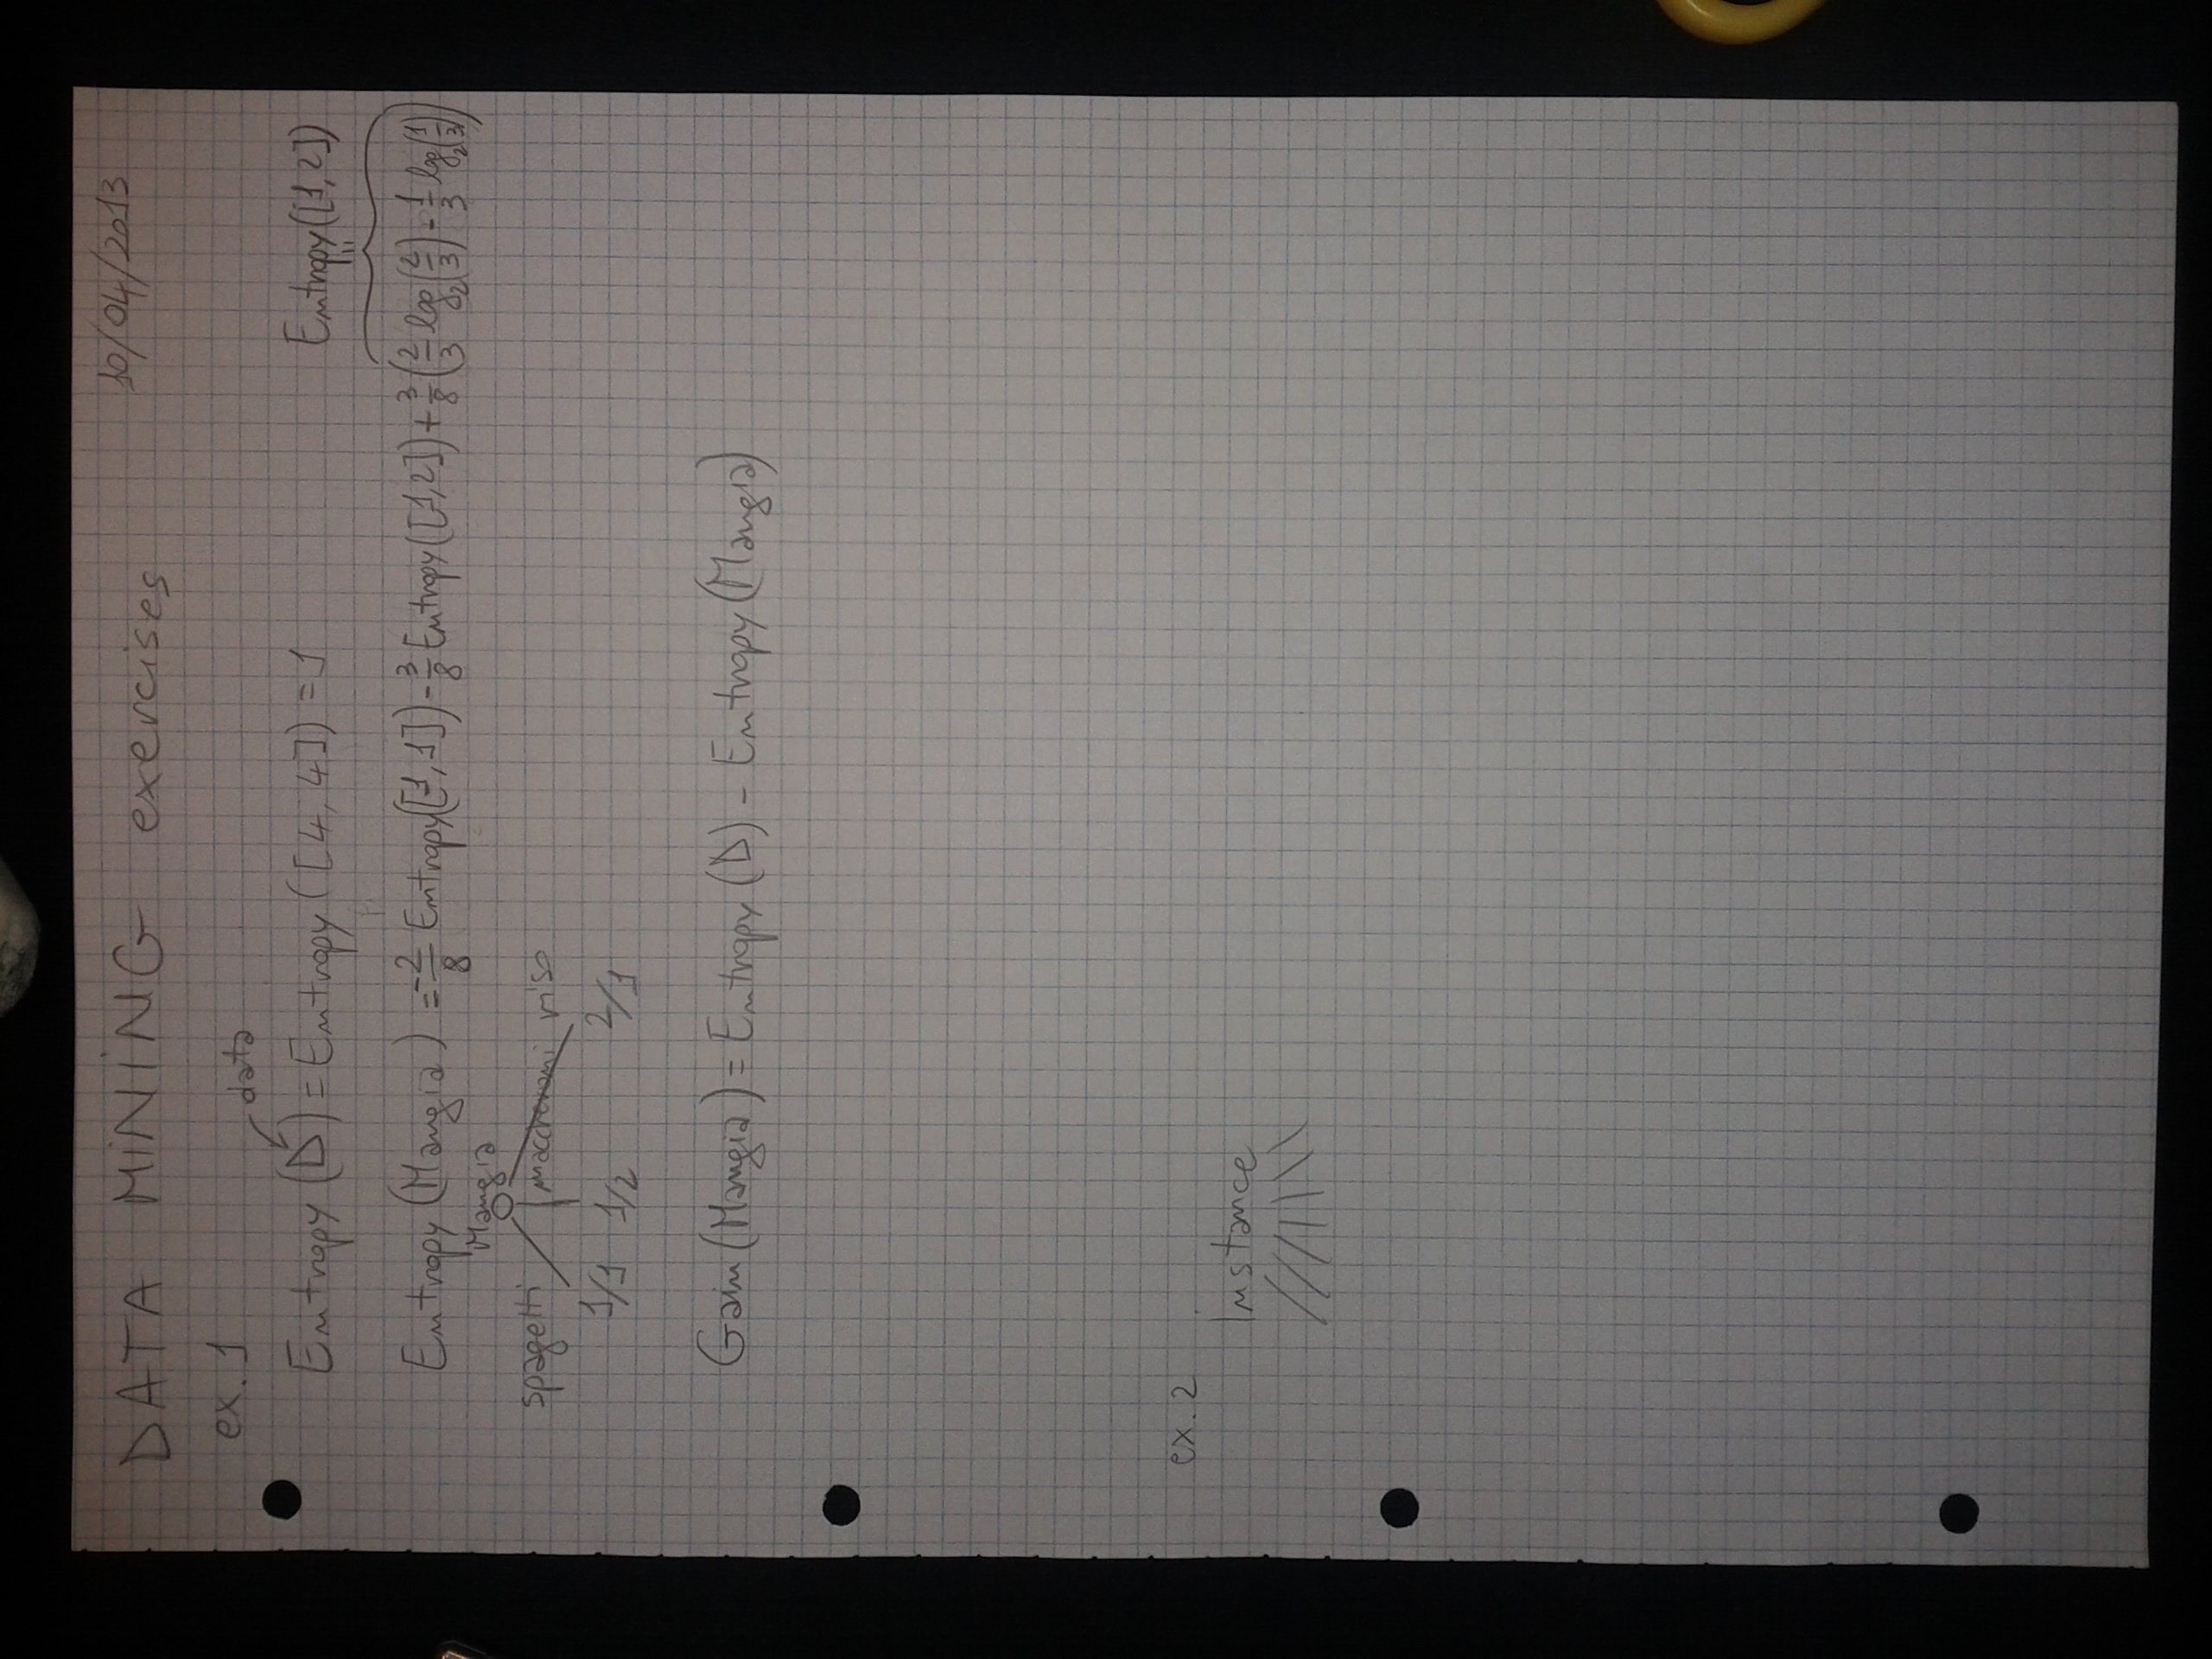 DATA MINING exercises 10/04/2013
ex. 1
data
Entropy (D) = Entropy ([4, 4]) = 1
Entropy([1, 2])
=
Entropy (Mangia) = -2/8 Entropy([1, 1]) - 3/8 Entropy([1,2]) + 3/8 (2/3 log₂(2/3) - 1/3 log₂(1/3))
Mangia
spagetti maccheroni riso
1/1 1/2 2/1
Gain (Mangia) = Entropy (D) - Entropy (Mangia)
ex. 2
Instance